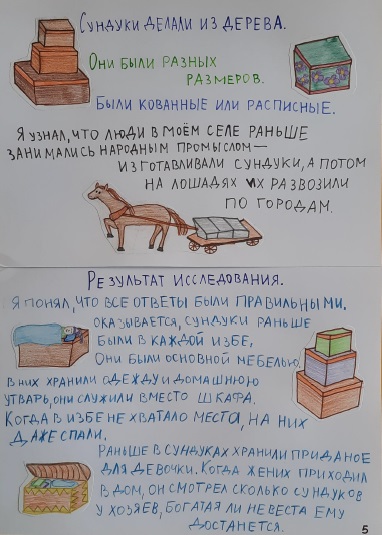 Сундуки делали из дерева.
Они были разных
размеров.
Были кованные или расписные.
Я узнал, что люди в моём селе раньше
занимались народным промыслом—
изготавливали сундуки, а потом
на лошадях их развозили
по городам.
Результат исследования.
Я понял, что все ответы были правильными.
Оказывается, сундуки раньше
были в каждой избе,
они были основной мебелью.
В них хранили одежду и домашнюю
утварь, они служили вместо шкафа.
Когда в избе не хватало места, на них
даже спали.
Раньше в сундуках хранили приданое
для девочки. Когда жених приходил
в дом, он смотрел сколько сундуков
у хозяев, богатая ли невеста ему
достанется.
5